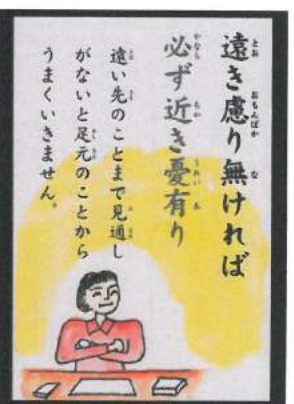 遠き慮り無ければ
必ず近き憂有り
遠い先のことまで見通し
がないと足元のことから
うまくいきません。